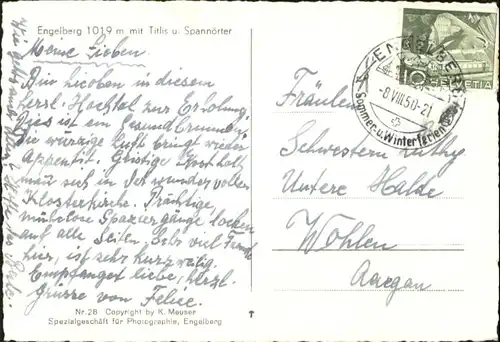 Engelberg 1019 m mit Titlis u. Spannörter
Meine Lieben.
Bin hieoben in diesem
herrl. Hochtal zur Erholung.
Dies ist ein Gesundbrunnen.
Die würzige Luft bringt wieder
Appetit. Geistige Kost holt
man sich in der wunder vollen
Klosterkirche. Prächtige,
mühelose Spaziergänge locken
auf alle Seiten. Sehr viel
hier, ist sehr kurzweilig.
Empfanget liebe, herzl.
Grüsse von
Nr. 28 Copyright by K. Meuser
Spezialgeschäft für Photographie, Engelberg
ENGELBERG
-8.VIII.50-21
Sommer- u. Winterferien
10
HELVETIA
Fräulein
Schwestern
Untere Halde
Wohlen
Aargau